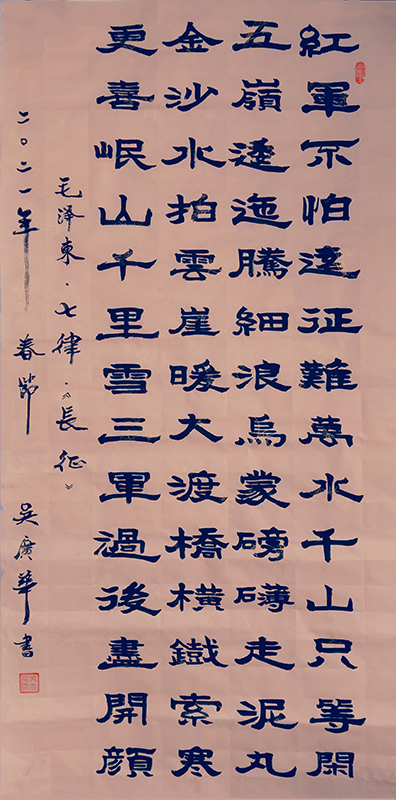 紅軍不怕遠征難萬水千山只等閑
五嶺逶迤騰細浪烏蒙磅礴走泥丸
金沙水拍雲崖暖大渡橋橫鐵索寒
更喜岷山千里雪三軍過後盡開顏
毛泽東·七律·《長征》
二〇二一年 春節 吴廣華書